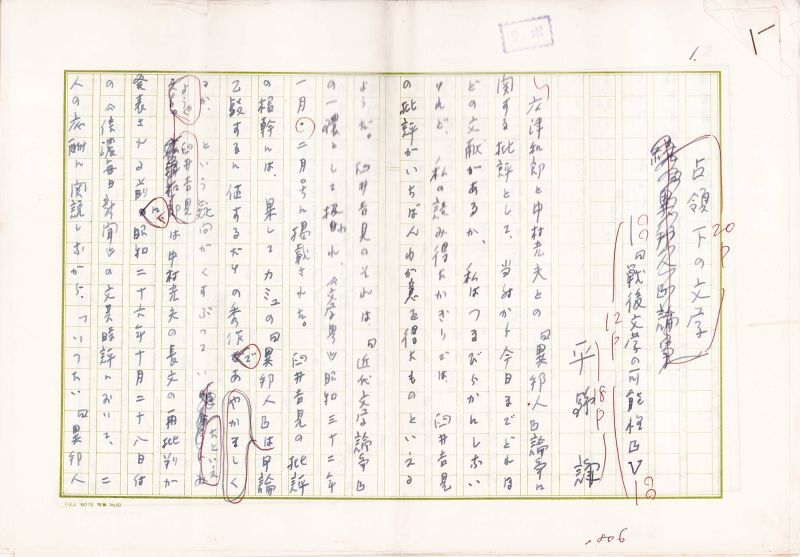 占領下の文学
20P
『戦後文学の可能性』
12P
平野謙
18P
1.
広津和郎と中村光夫との『異邦人』論争に
関する批評として、当時から今日までどれほ
どの文献があるか、私はつまびらかにしない
けれど、私の読み得たかぎりでは、臼井吉見
の批評がいちばんわが意を得たものといえる
ようだ。臼井吉見のそれは、『近代文学論争』
の一環として描かれ、《文学界》昭和三十二年
一月・二月号に掲載された。臼井吉見の批評
の根幹は、果してカミュの『異邦人』は甲論
乙駁するに価するだけの秀作であ
るか、という疑問がくすぶってい
やかましく
たといえ
ようか。臼井吉見
は中村光夫の長文の再批判が
発表される前に昭和二十六年十月二十八日付
の《信濃毎日新聞》の文芸時評において、二
人の応酬に関説しながら、「いったい『異邦人
FULL NOTE 特製 No.50